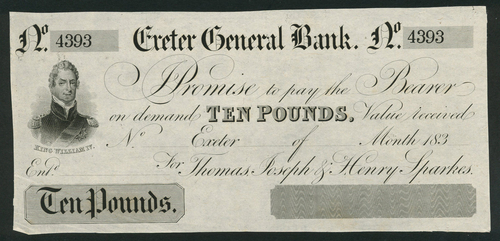 No. 4393 Exeter General Bank. No. 4393
I Promise to pay the Bearer
on demand TEN POUNDS, Value received
No Exeter of Month 183
KING WILLIAM IV.
Entd. For Thomas, Joseph & Henry Sparkes.
Ten Pounds.